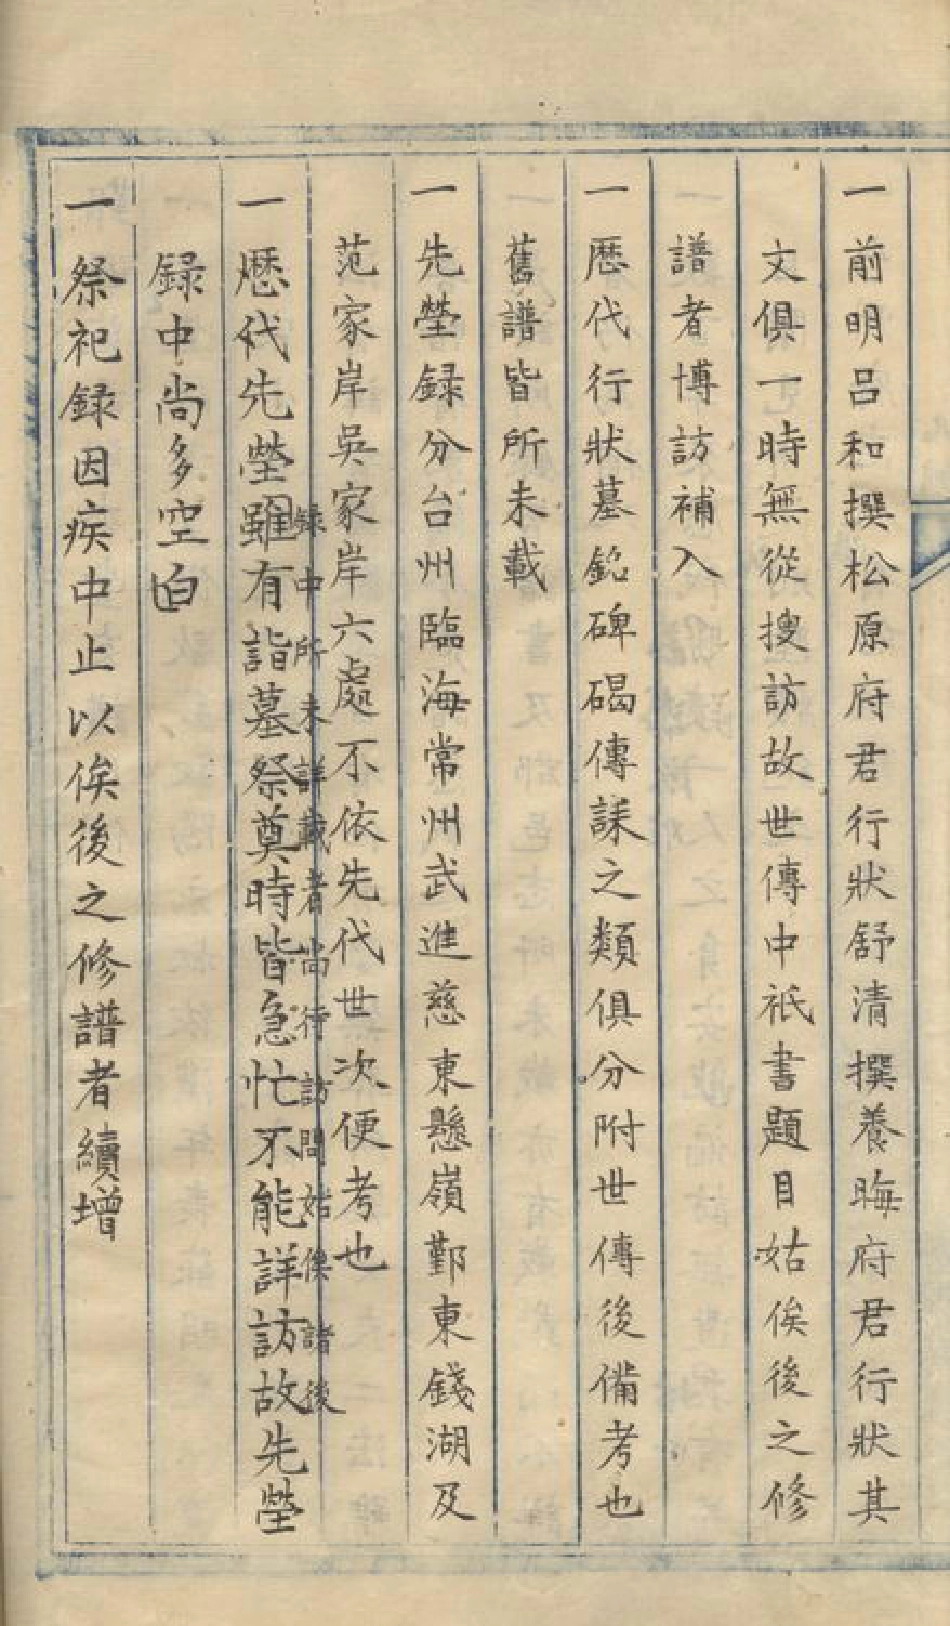 一前明呂和撰松原府君行狀舒清撰養晦府君行狀其
文俱一時無從搜訪故世傳中祇書題目姑俟後之修
譜者博訪補入
一歷代行狀墓銘碑碣傳誄之類俱分附世傳後備考也
舊譜皆所未載
一先塋録分台州臨海常州武進慈東懸嶺鄞東錢湖及
范家岸吳家岸六處不依先代世次便考也
録中所未詳載者尚待訪問姑俟諸後
一歷代先塋雖有詣墓祭奠時皆急忙不能詳訪故先塋
録中尚多空白
一祭祀録因疾中止以俟後之修譜者續增